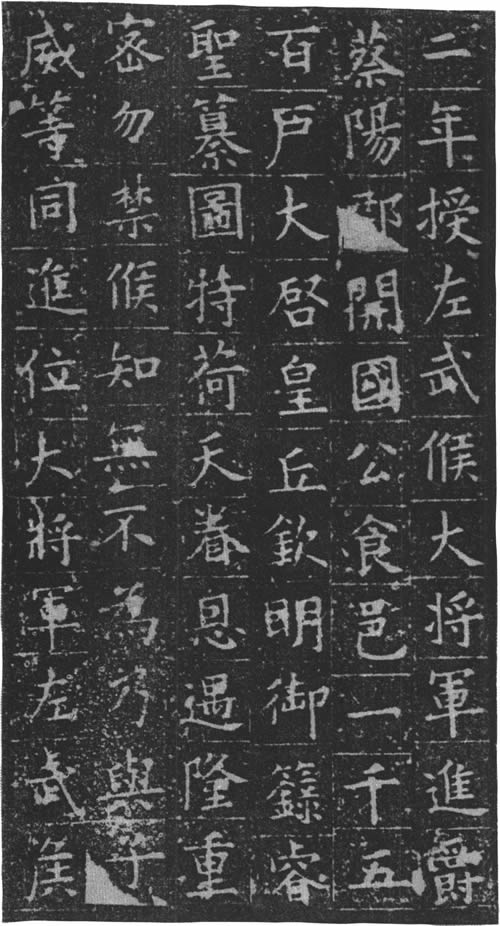 二年授左武候大将軍進爵
蔡陽郡開國公食邑一千五
百户大啓皇丘欽明御籙睿
聖纂圖特荷天眷恩遇隆重
宻勿禁候知無不為乃與于
威等同進位大將軍左武候